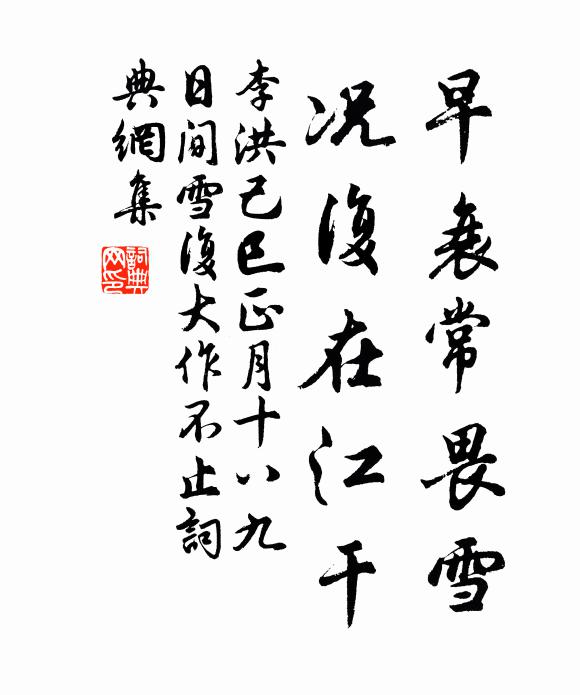 早衰常畏雪
况復在江干
李洪己巳正月十八九
日間雪復大作不止詞
典網集
詞典
网印